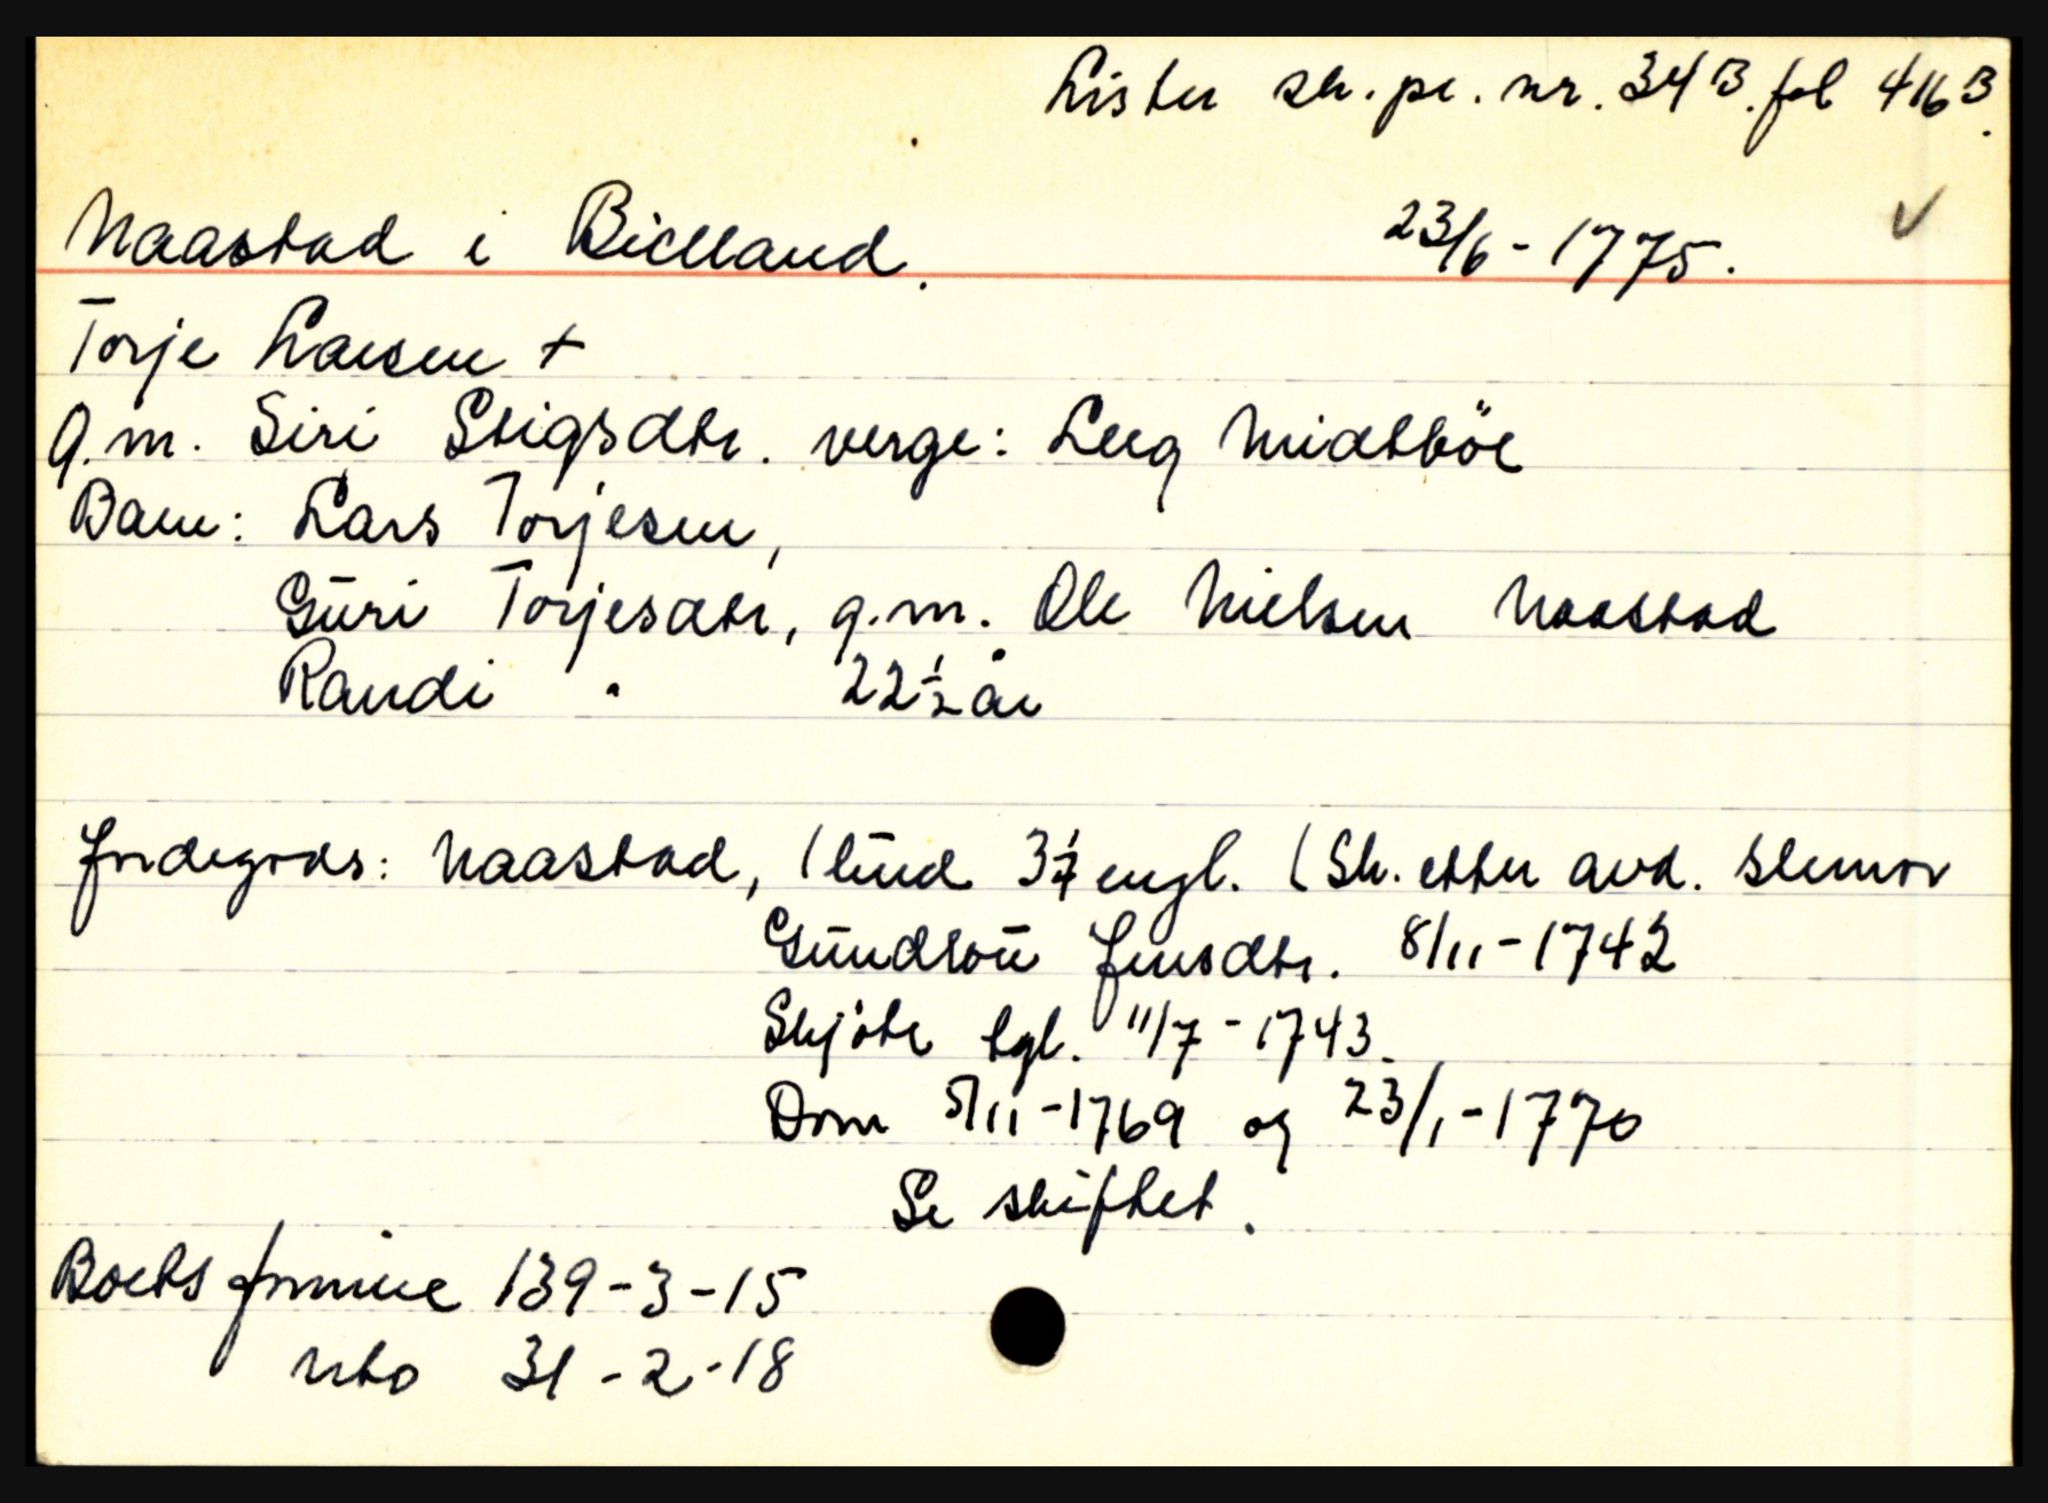 Lister sk. pr. nr. 34 B. fol 416 B.
Naastad i Bielland. 23/6 - 1775. ✓
Torje Larsen +
g.m. Siri Stigsdtr. verge: Leeg Midtböe
Barn: Lars Torjesen,
Gūri Torjesdtr, g.m. Ole Nielsen Naastad
Randi " 22 1/2 år
Jordegods: Naastad, 1 hūd 3 1/7 engl. (Sk. etter avd. stemor
Gūndlōū Jensdtr. 8/11 - 1742
Skjöte tgl. 11/7 - 1743.
Dom 5/11 - 1769 og 23/1 - 1770
Se skiftet.
Boets formue 139 - 3 - 15
nto 31 - 2 - 18